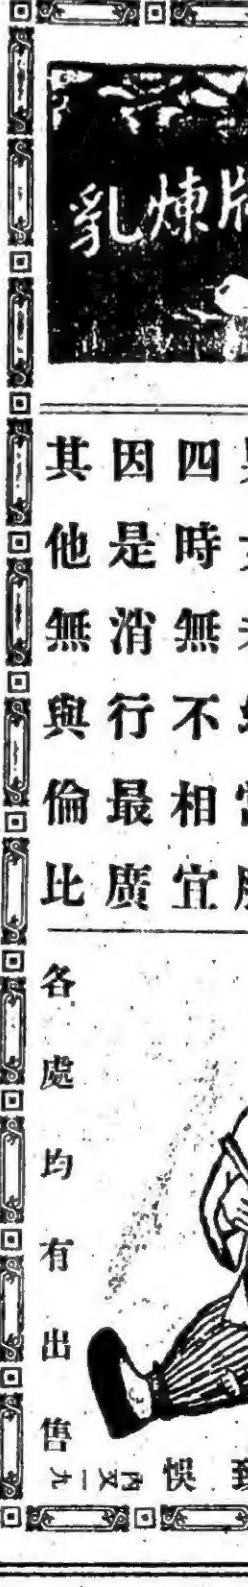 牌煉乳
四時無不相宜
因是消行最廣
其他無與倫比
各處均有出售
悞
內又一九